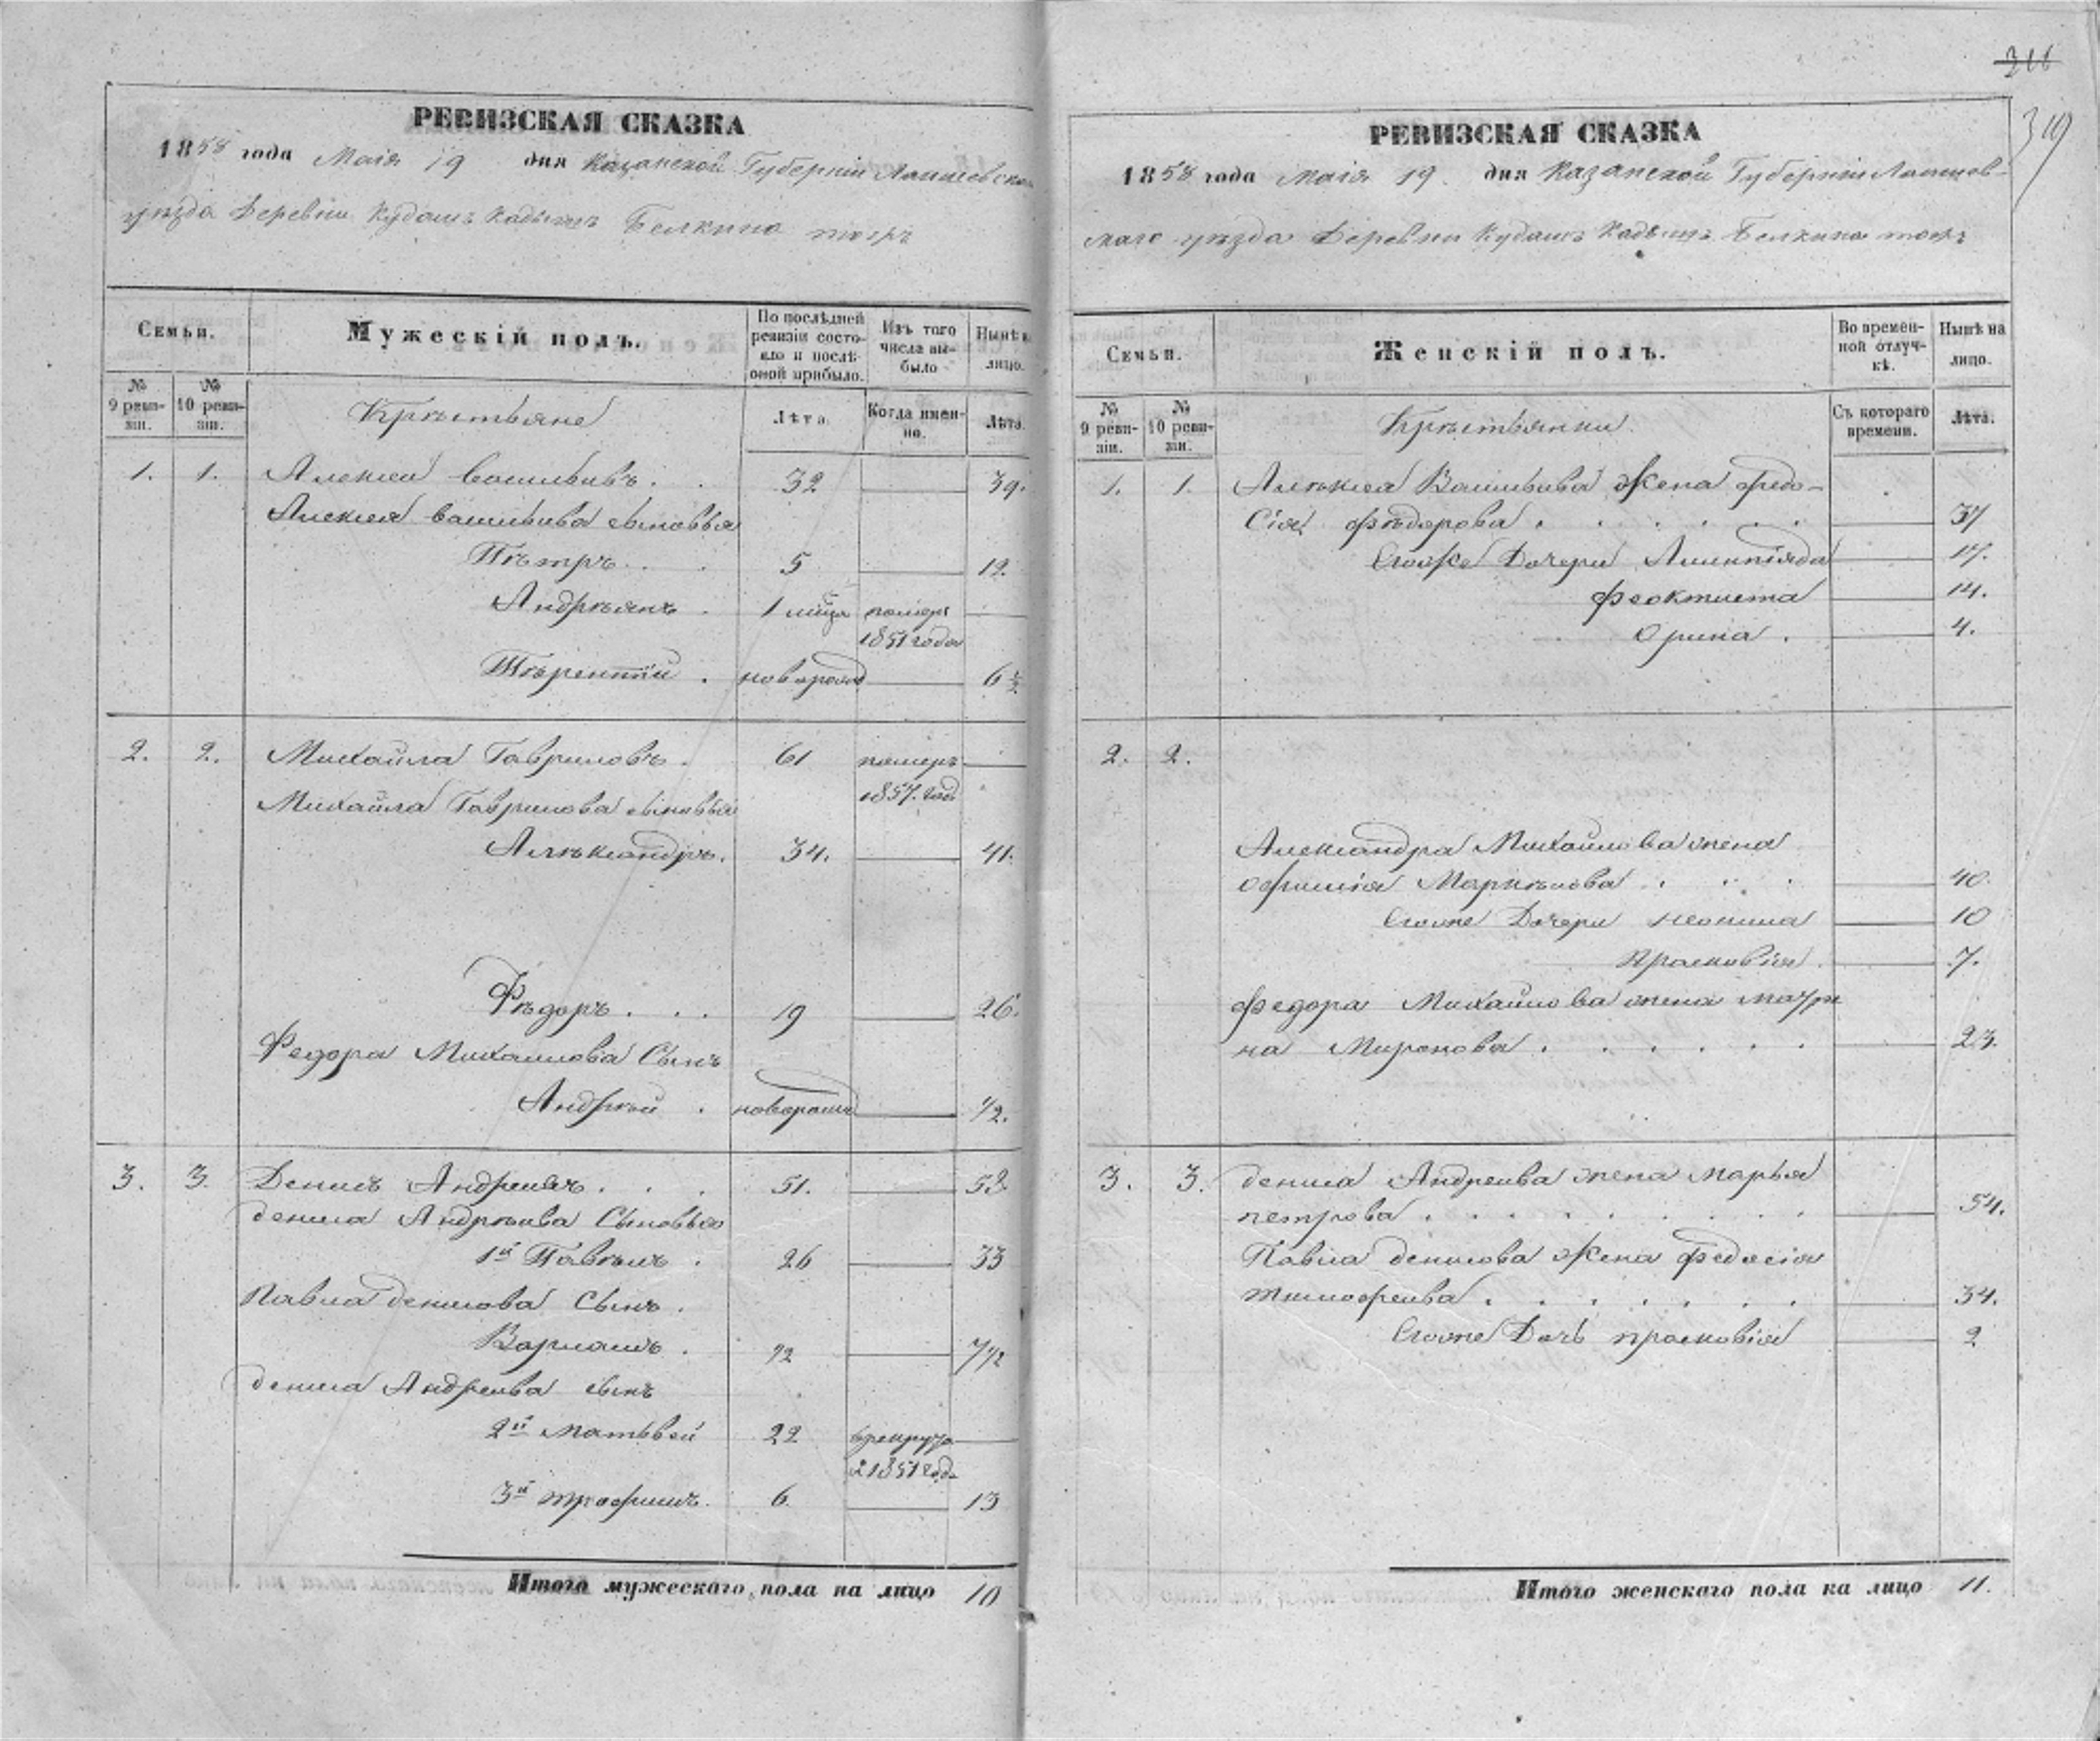 316
319
РЕВИЗСКАЯ СКАЗКА
1858 года Маія 19 дня Казанской Губерніи Лаишевска
уѣзда Деревни Кудашъ Кадышъ Белкино тожъ
Семьи.
Мужескій полъ.
По послѣдней ревизіи состояло и послѣ оной прибыло.
Изъ того числа выбыло
Нынѣ на лицо.
№ 9 ревизіи.
№ 10 ревизіи.
Крѣстьяне
Лѣта.
Когда именно.
Лѣта.
1. 1. Алексей Васильивъ . . 32 39.
Алексея Васильива сыновья
Пѣтръ . . 5 12.
Андрѣянъ . 1 мѣца померъ
1851 года
Тѣрентій . новорожд 6 ½
2. 2. Михайла Гавриловъ . 61 померъ
1857. года
Михайла Гаврилова сыновья
Алѣксандръ. 34. 41.
Фѣдоръ . . . 19 26.
Федора Михаилова Сынъ
Андрѣй . новорожд 1/2.
3. 3. Денисъ Андреивъ . . . 51. 58.
дениса Андрѣива Сыновья
1й Павѣлъ . 26 33
Павла денисова Сынъ .
Варламъ . 1/2 7 1/2
дениса Андреива сынъ
2й Матьвей 22 врекруты
в 1851 году
3й трофимъ. 6. 13
Итого мужескаго пола на лицо 10
РЕВИЗСКАЯ СКАЗКА
1858 года Маія 19. дня Казанской Губерніи Лаишев-
скаго уѣзда Деревни Кудашъ Кадышъ Белкино тожъ
Семьи.
Женскій полъ.
Во временной отлучкѣ.
Нынѣ на лицо.
№ 9 ревизіи.
№ 10 ревизіи.
Крѣстьянки.
Съ котораго времени.
Лѣта.
1. 1. Алѣксея Васильива Жена Федо-
сія Фѣдорова . . . . . . 37
Егоже Дочери Алимпіяда 17.
Феоктиста 14.
Орина . 4.
2. 2.
Александра Михайлова жена
Офимія Маркѣлова . . . 40.
Егоже Дочери Неонила 10
Прасковія . 7.
Федора Михайлова жена Матре
на Миронова . . . . . . 23.
3. 3. дениса Андреива жена Марья
петрова . . . . . . . . 54.
Павла денисова Жена Федосія
тимофеива . . . . . . . 34.
Егоже Дочь прасковія 2
Итого женскаго пола на лицо 11.